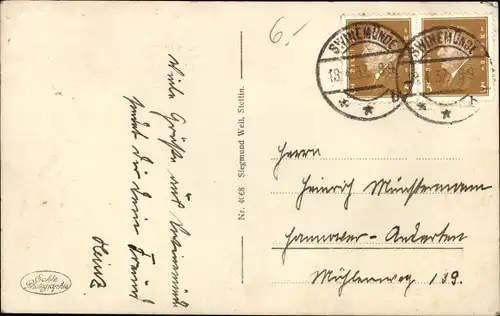 6.-
SWINEMÜNDE
SWINEMÜNDE
Viele Grüße aus Swinemünde
sendet Dir Dein Freund
Heinz
Nr. 4068 Siegmund Weil, Stettin.
Echte
Photographie
Herrn
Heinrich Münstermann
Hannover-Anderten
Mühlenweg 139.